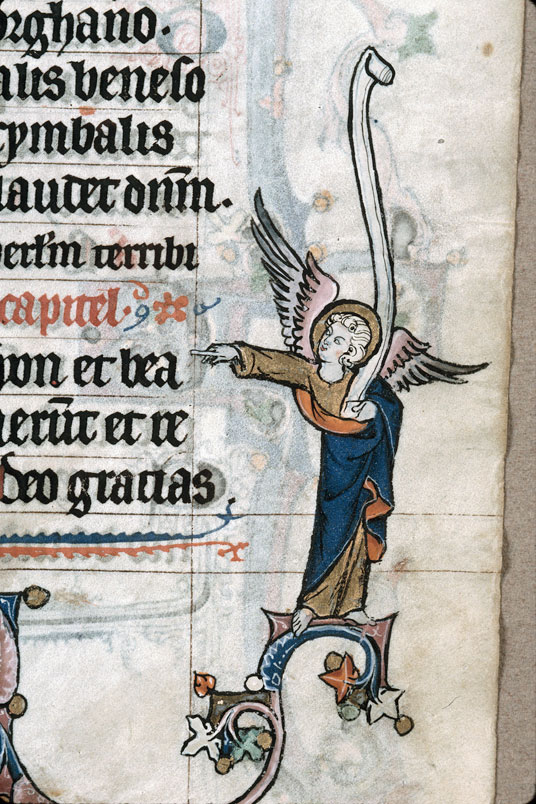 orghano.
alis beneso
cymbalis
laudet dnm.
versm terribi
capitel.
yon et bea
nerut et re
deo gracias.